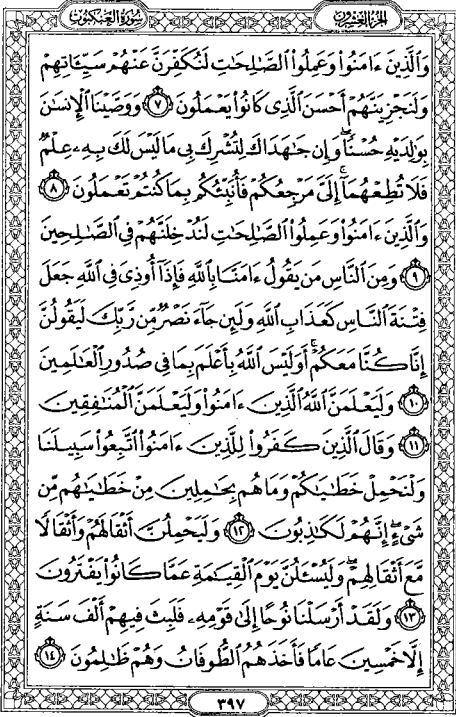 سُورَةُ العَنكبُوتِ الجُزءُ العِشرُونَ
وَٱلَّذِينَ ءَامَنُواْ وَعَمِلُواْ ٱلصَّٰلِحَٰتِ لَنُكَفِّرَنَّ عَنْهُمْ سَيِّـَٔاتِهِمْ
وَلَنَجْزِيَنَّهُمْ أَحْسَنَ ٱلَّذِى كَانُواْ يَعْمَلُونَ ٧ وَوَصَّيْنَا ٱلْإِنسَٰنَ
بِوَٰلِدَيْهِ حُسْنًا ۖ وَإِن جَٰهَدَاكَ لِتُشْرِكَ بِى مَا لَيْسَ لَكَ بِهِۦ عِلْمٌ
فَلَا تُطِعْهُمَآ ۚ إِلَىَّ مَرْجِعُكُمْ فَأُنَبِّئُكُم بِمَا كُنتُمْ تَعْمَلُونَ ٨
وَٱلَّذِينَ ءَامَنُواْ وَعَمِلُواْ ٱلصَّٰلِحَٰتِ لَنُدْخِلَنَّهُمْ فِى ٱلصَّٰلِحِينَ
٩ وَمِنَ ٱلنَّاسِ مَن يَقُولُ ءَامَنَّا بِٱللَّهِ فَإِذَآ أُوذِىَ فِى ٱللَّهِ جَعَلَ
فِتْنَةَ ٱلنَّاسِ كَعَذَابِ ٱللَّهِ وَلَئِن جَآءَ نَصْرٌ مِّن رَّبِّكَ لَيَقُولُنَّ
إِنَّا كُنَّا مَعَكُمْ ۚ أَوَلَيْسَ ٱللَّهُ بِأَعْلَمَ بِمَا فِى صُدُورِ ٱلْعَٰلَمِينَ
١٠ وَلَيَعْلَمَنَّ ٱللَّهُ ٱلَّذِينَ ءَامَنُواْ وَلَيَعْلَمَنَّ ٱلْمُنَٰفِقِينَ
١١ وَقَالَ ٱلَّذِينَ كَفَرُواْ لِلَّذِينَ ءَامَنُواْ ٱتَّبِعُواْ سَبِيلَنَا
وَلْنَحْمِلْ خَطَٰيَٰكُمْ وَمَا هُم بِحَٰمِلِينَ مِنْ خَطَٰيَٰهُم مِّن
شَىْءٍ ۖ إِنَّهُمْ لَكَٰذِبُونَ ١٢ وَلَيَحْمِلُنَّ أَثْقَالَهُمْ وَأَثْقَالًا
مَّعَ أَثْقَالِهِمْ ۖ وَلَيُسْـَٔلُنَّ يَوْمَ ٱلْقِيَٰمَةِ عَمَّا كَانُواْ يَفْتَرُونَ
١٣ وَلَقَدْ أَرْسَلْنَا نُوحًا إِلَىٰ قَوْمِهِۦ فَلَبِثَ فِيهِمْ أَلْفَ سَنَةٍ
إِلَّا خَمْسِينَ عَامًا فَأَخَذَهُمُ ٱلطُّوفَانُ وَهُمْ ظَٰلِمُونَ ١٤
٣٩٧